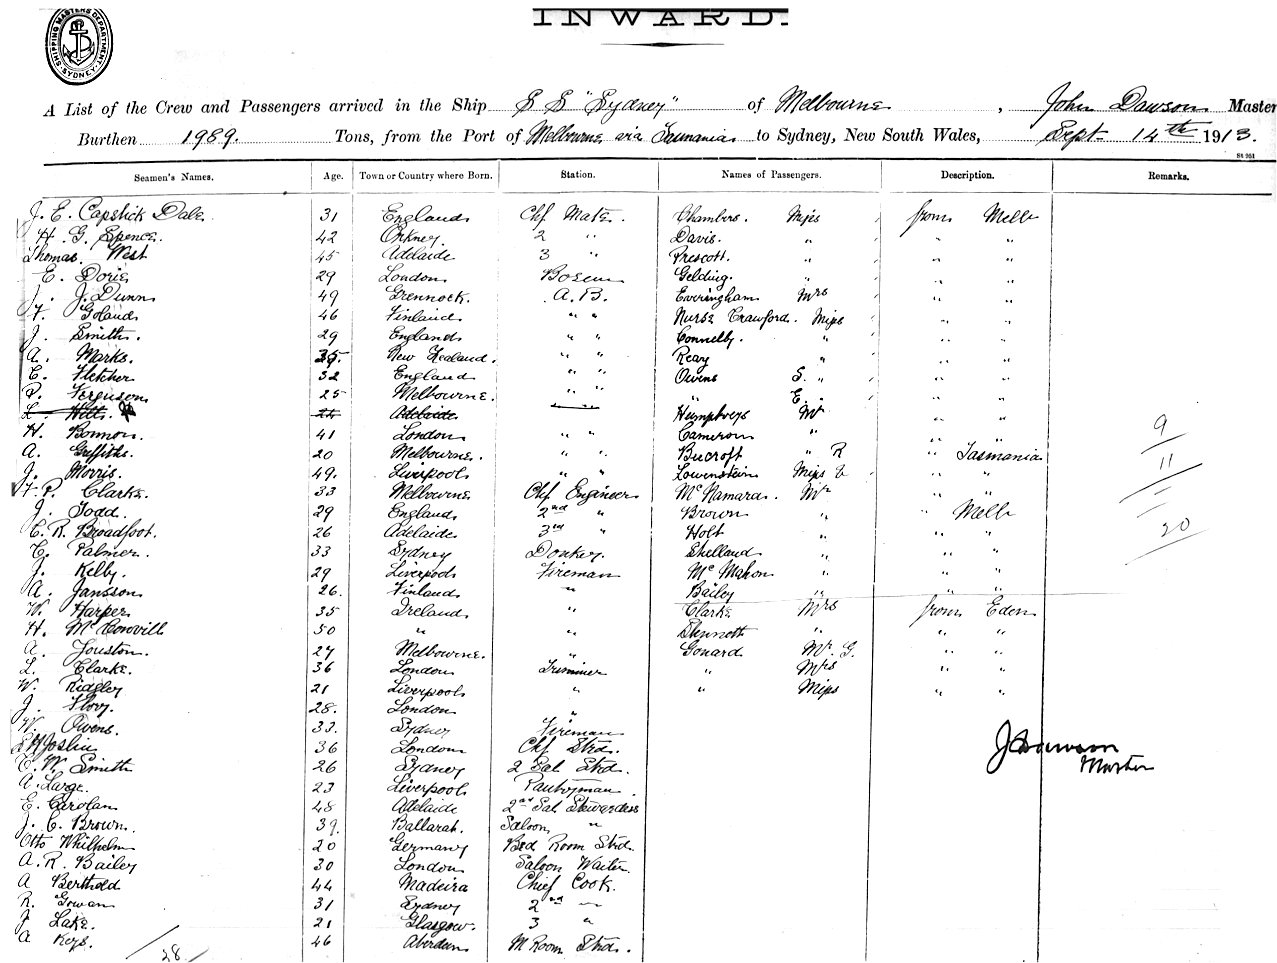 SHIPPING MASTERS DEPARTMENT. SYDNEY
INWARD.
A List of the Crew and Passengers arrived in the Ship S S "Sydney" of Melbourne, John Dawson Master
Burthen 1989. Tons, from the Port of Melbourne via Tasmania to Sydney, New South Wales, Sept 14th 1913.
St 951
Seamen's Names. Age. Town or Country where Born. Station. Names of Passengers. Description. Remarks.
J. E. Capstick Dale. 31 England Chf Mate. Chambers. Miss from Melb
H. G. Spence. 42 Orkney. 2 " Davis. " " "
Thomas. West 45 Adelaide 3 " Prescott. " " "
E. Doris 29 London Bosun Gelding. " " "
J. J. Dunn 49 Greenock. A.B. Everingham Mrs " "
F. Goland 46 Finland " " Nurse Crawford. Miss " "
J. Smith. 29 England " " Connelly. " " "
A. Marks. New Zealand. " " Reay " " "
C. Fletcher 32 England " " Owens S. " " "
P. Ferguson 25 Melbourne. " " " E. " " "
L. Hill. Adelaide Humphreys Mr " "
H. Bonnon. 41 London " " Cameron " " " 9
A. Griffiths. 20 Melbourne. " " Bucroft " R " Tasmania
J. Morris. 49. Liverpool " " Lowenstein Miss " " 11
F. P. Clarke. 33 Melbourne Chf Engineer McNamara. Mr " "
J. Todd. 29 England 2nd " Brown " " Melb
C. R. Broadfoot. 26 Adelaide 3rd " Holt " " " 20
C. Palmer. 33 Sydney Donkey. Shelland " " "
J. Kelly. 29 Liverpool Fireman McMahon " " "
A. Jansson 26. Finland " Bailey " " "
W. Harper 35 Ireland " Clarke Mrs from Eden
H. McConvill 50 " " Stennett " " "
A. Houston. 27 Melbourne. " Gonard Mr. G. " "
L. Clarke. 36 London Trimmer " Mrs " "
W. Ridgley 21 Liverpool " " Miss " "
J. 28. London "
W. Owens. 33. Sydney Fireman
Joslin 36 London Chf Strd.
C. W. Smith 26 Sydney 2 Sal Strd.
J Dawson
Master
A. Large. 23 Liverpool Pantryman.
E. Carolan 48 Adelaide 2nd Sal Stewardess
J. C. Brown. 39. Ballarat. Saloon "
Otto Whilhelm 20 Germany Bed Room Strd.
A. R. Bailey 30 London Saloon Waiter.
A Berthold 44 Madeira Chief Cook.
R. Gowan 31 Sydney 2nd "
J Lake. 21 Glasgow. 3 "
A Keys. 46 Aberdeen M Room Strd.
28